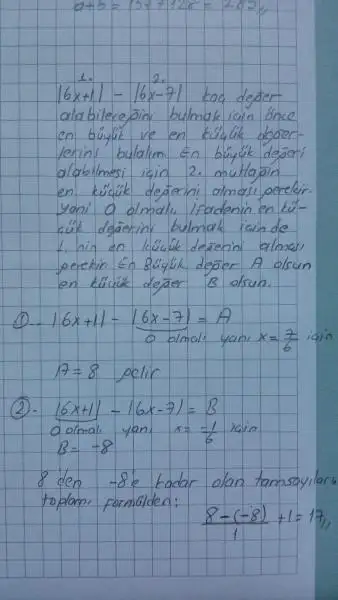 a+b = 157+128 = 285,,
1. 2.
|6x+1| - |6x-7| kaç değer
alabileceğini bulmak için önce
en büyük ve en küçük değer-
lerini bulalım. En büyük değeri
alabilmesi için 2. mutlağın
en küçük değerini alması gerekir.
Yani 0 olmalı. İfadenin en kü-
çük değerini bulmak için de
1. nin en küçük değerini alması
gerekir. En Büyük değer A olsun
en küçük değer B olsun.
①-- |6x+1| - |6x-7| = A
0 olmalı yani x = 7/6 için
A = 8 gelir
②- |6x+1| - |6x-7| = B
0 olmalı yani x = -1/6 için
B = -8
8'den -8'e kadar olan tamsayıları
toplamı formülden:
8-(-8)/1 +1 = 17,,